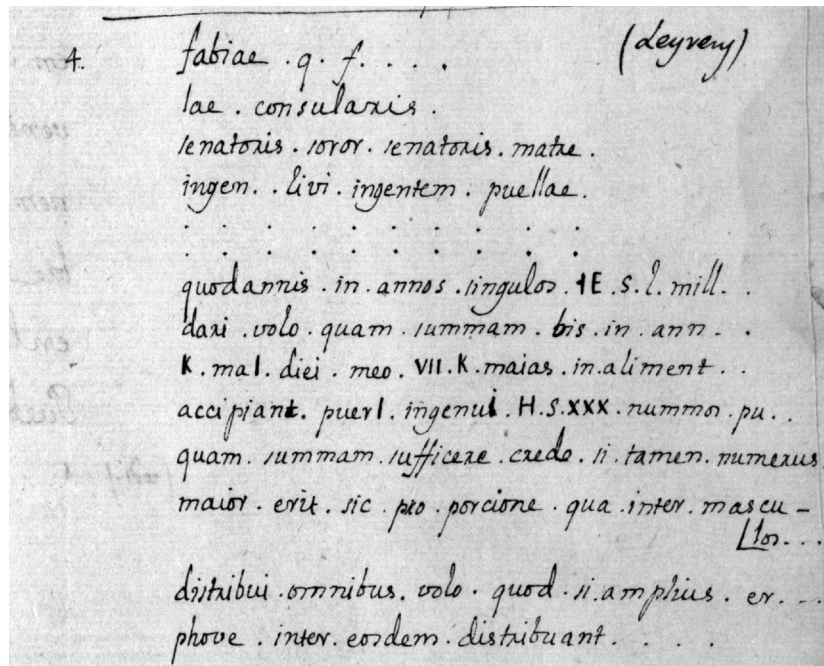 4. fabiae . q . f . . . . (Leyveny)
lae . consularis .
senatoris . soror . senatoris . matre .
ingen . . livi . ingentem . puellae .
. . . . . . . . . .
quodannis . in . annos . singulos . IE . S . l . mill . .
dari . volo . quam . summam . bis . in . ann . .
K . mal . diei . meo . VII . K . maias . in . aliment . .
accipiant . puerI . ingenuI . H.S.XXX . nummos . pu . .
quam . summam . sufficere . credo . si . tamen . numerus .
maior . erit . sic . pro . porcione . qua . inter . mascu -
los . . .
distribui . omnibus . volo . quod . si . amplius . er . . .
phove . inter . eosdem . distribuant . . . .